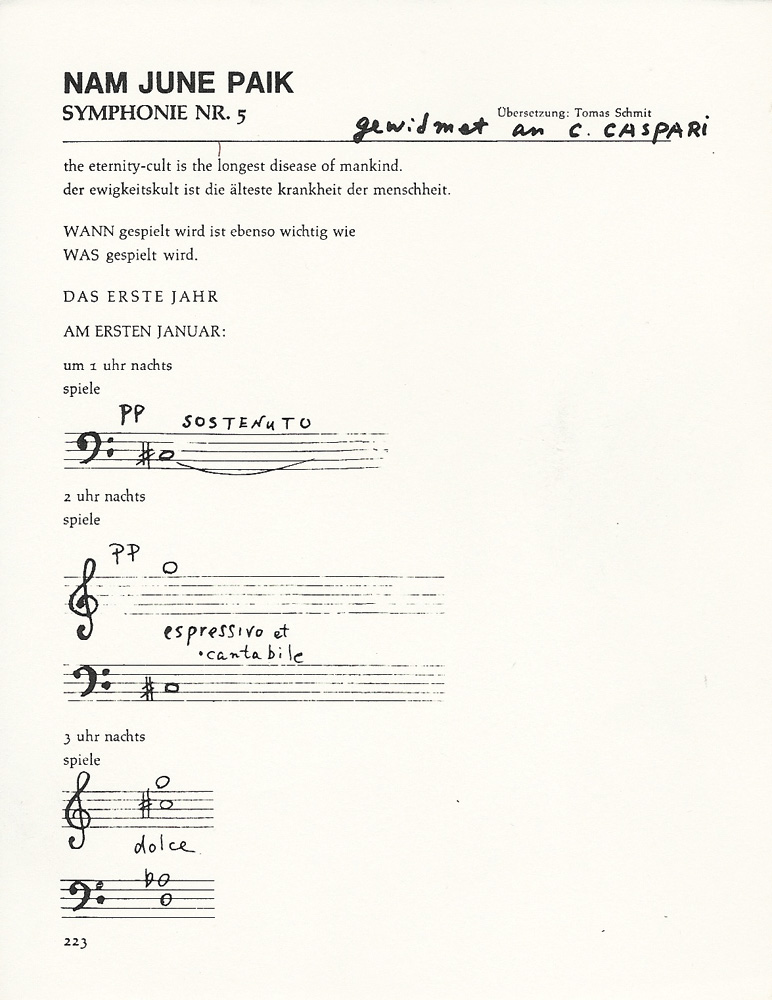 NAM JUNE PAIK
SYMPHONIE NR. 5
Übersetzung: Tomas Schmit
gewidmet an C. CASPARi
the eternity-cult is the longest disease of mankind.
der ewigkeitskult ist die älteste krankheit der menschheit.
WANN gespielt wird ist ebenso wichtig wie
WAS gespielt wird.
DAS ERSTE JAHR
AM ERSTEN JANUAR:
um 1 uhr nachts
spiele
PP SOSTENuTO
2 uhr nachts
spiele
PP
espressivo et
cantabile
3 uhr nachts
spiele
dolce
223